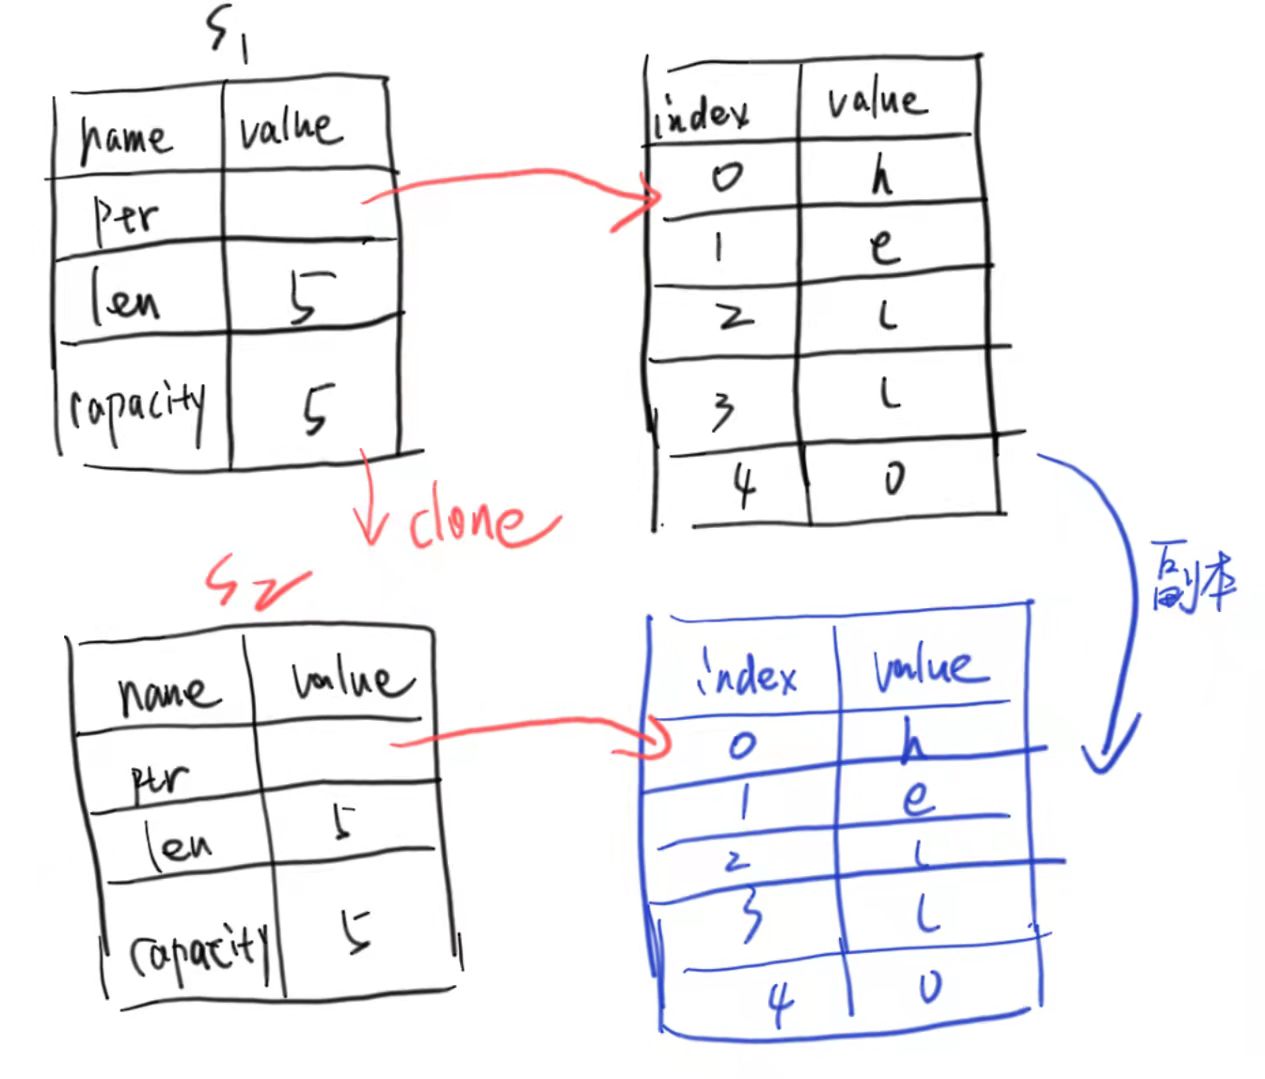 S1
name value
ptr
len 5
capacity 5
index value
0 h
1 e
2 l
3 l
4 o
clone
副本
S2
name value
ptr
len 5
capacity 5
index value
0 h
1 e
2 l
3 l
4 o